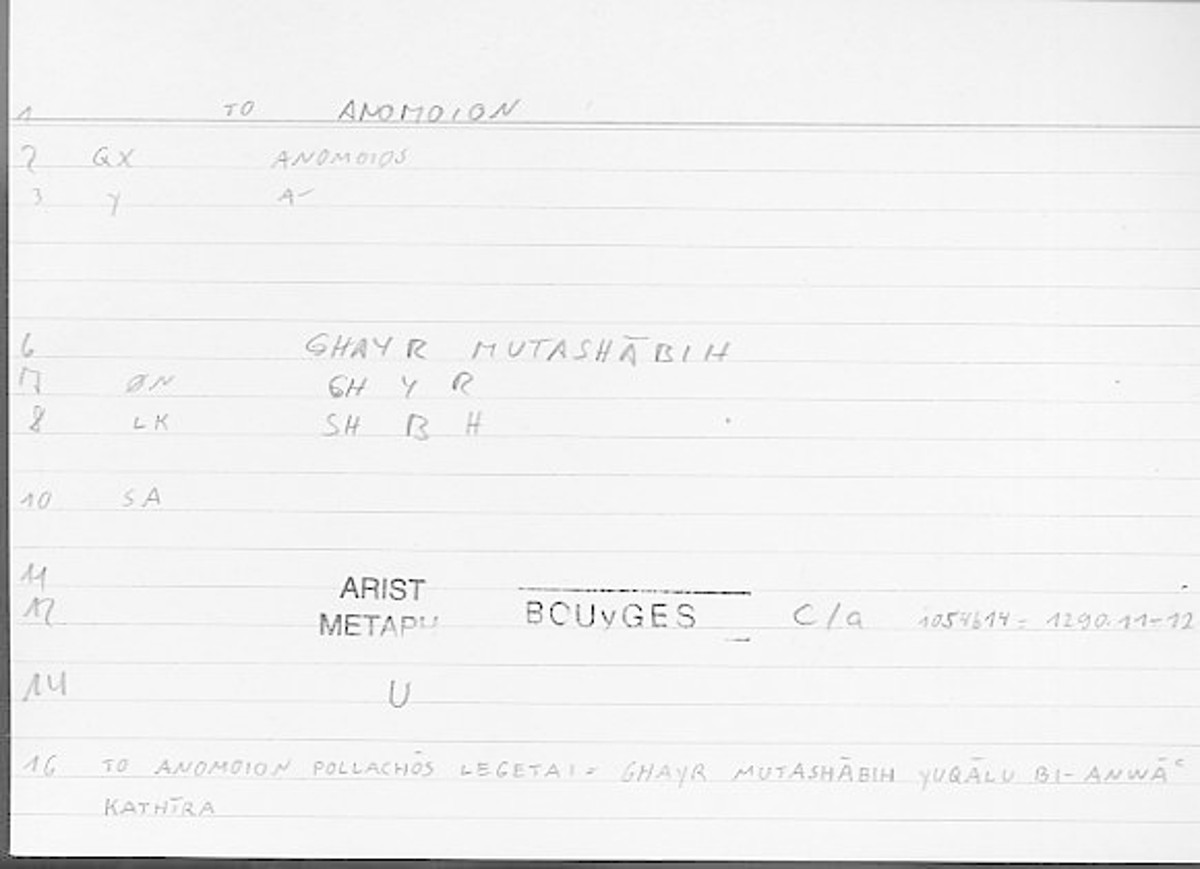 1 TO ANOMOION
2 QX ANOMOIOS
3 Y A-
6 GHAYR MUTASHĀBIH
7 ØN GH Y R
8 LK SH B H
10 SA
11 ARIST
12 METAPH BOUYGES C/a 1054b14 = 1290.11-12
14 U
16 TO ANOMOION POLLACHŌS LEGETAI = GHAYR MUTASHĀBIH YUQĀLU BI-ANWĀᶜ
KATHĪRA